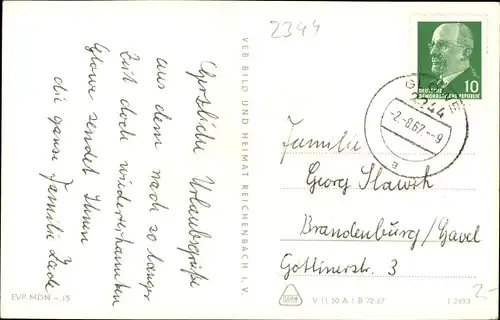 2344
Herzliche Urlaubsgrüße
aus dem nach so langer
Zeit doch wiedererkannten
Glowe sendet Ihnen
die ganze Familie
VEB BILD UND HEIMAT REICHENBACH I. V.
EVP MDN –.15
DEUTSCHE
DEMOKRATISCHE REPUBLIK
10
GLOWE
2344
-2.-8.67.--9
a
Familie
Georg Slawik
Brandenburg/Havel
Gottinerstr. 3
V 11 50 A 1 B 72/67
1 2493
2,-